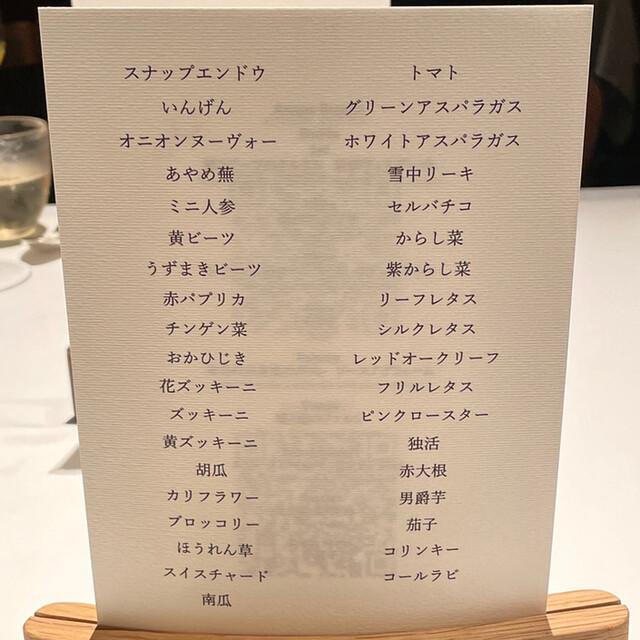 スナップエンドウ
いんげん
オニオンヌーヴォー
あやめ蕪
ミニ人参
黄ビーツ
うずまきビーツ
赤パプリカ
チンゲン菜
おかひじき
花ズッキーニ
ズッキーニ
黄ズッキーニ
胡瓜
カリフラワー
ブロッコリー
ほうれん草
スイスチャード
南瓜
トマト
グリーンアスパラガス
ホワイトアスパラガス
雪中リーキ
セルバチコ
からし菜
紫からし菜
リーフレタス
シルクレタス
レッドオークリーフ
フリルレタス
ピンクロースター
独活
赤大根
男爵芋
茄子
コリンキー
コールラビ